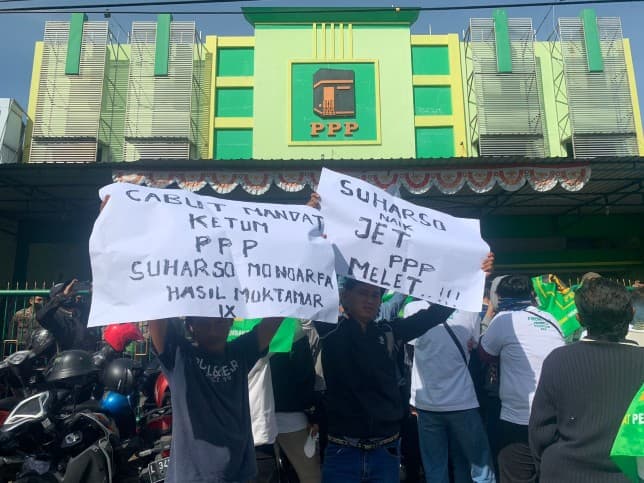 PPP
CABUT MANDAT
KETUM
PPP
SUHARSO MONOARFA
HASIL MUKTAMAR
IX
SUHARSO
NAIK
JET
PPP
MELET..!!!